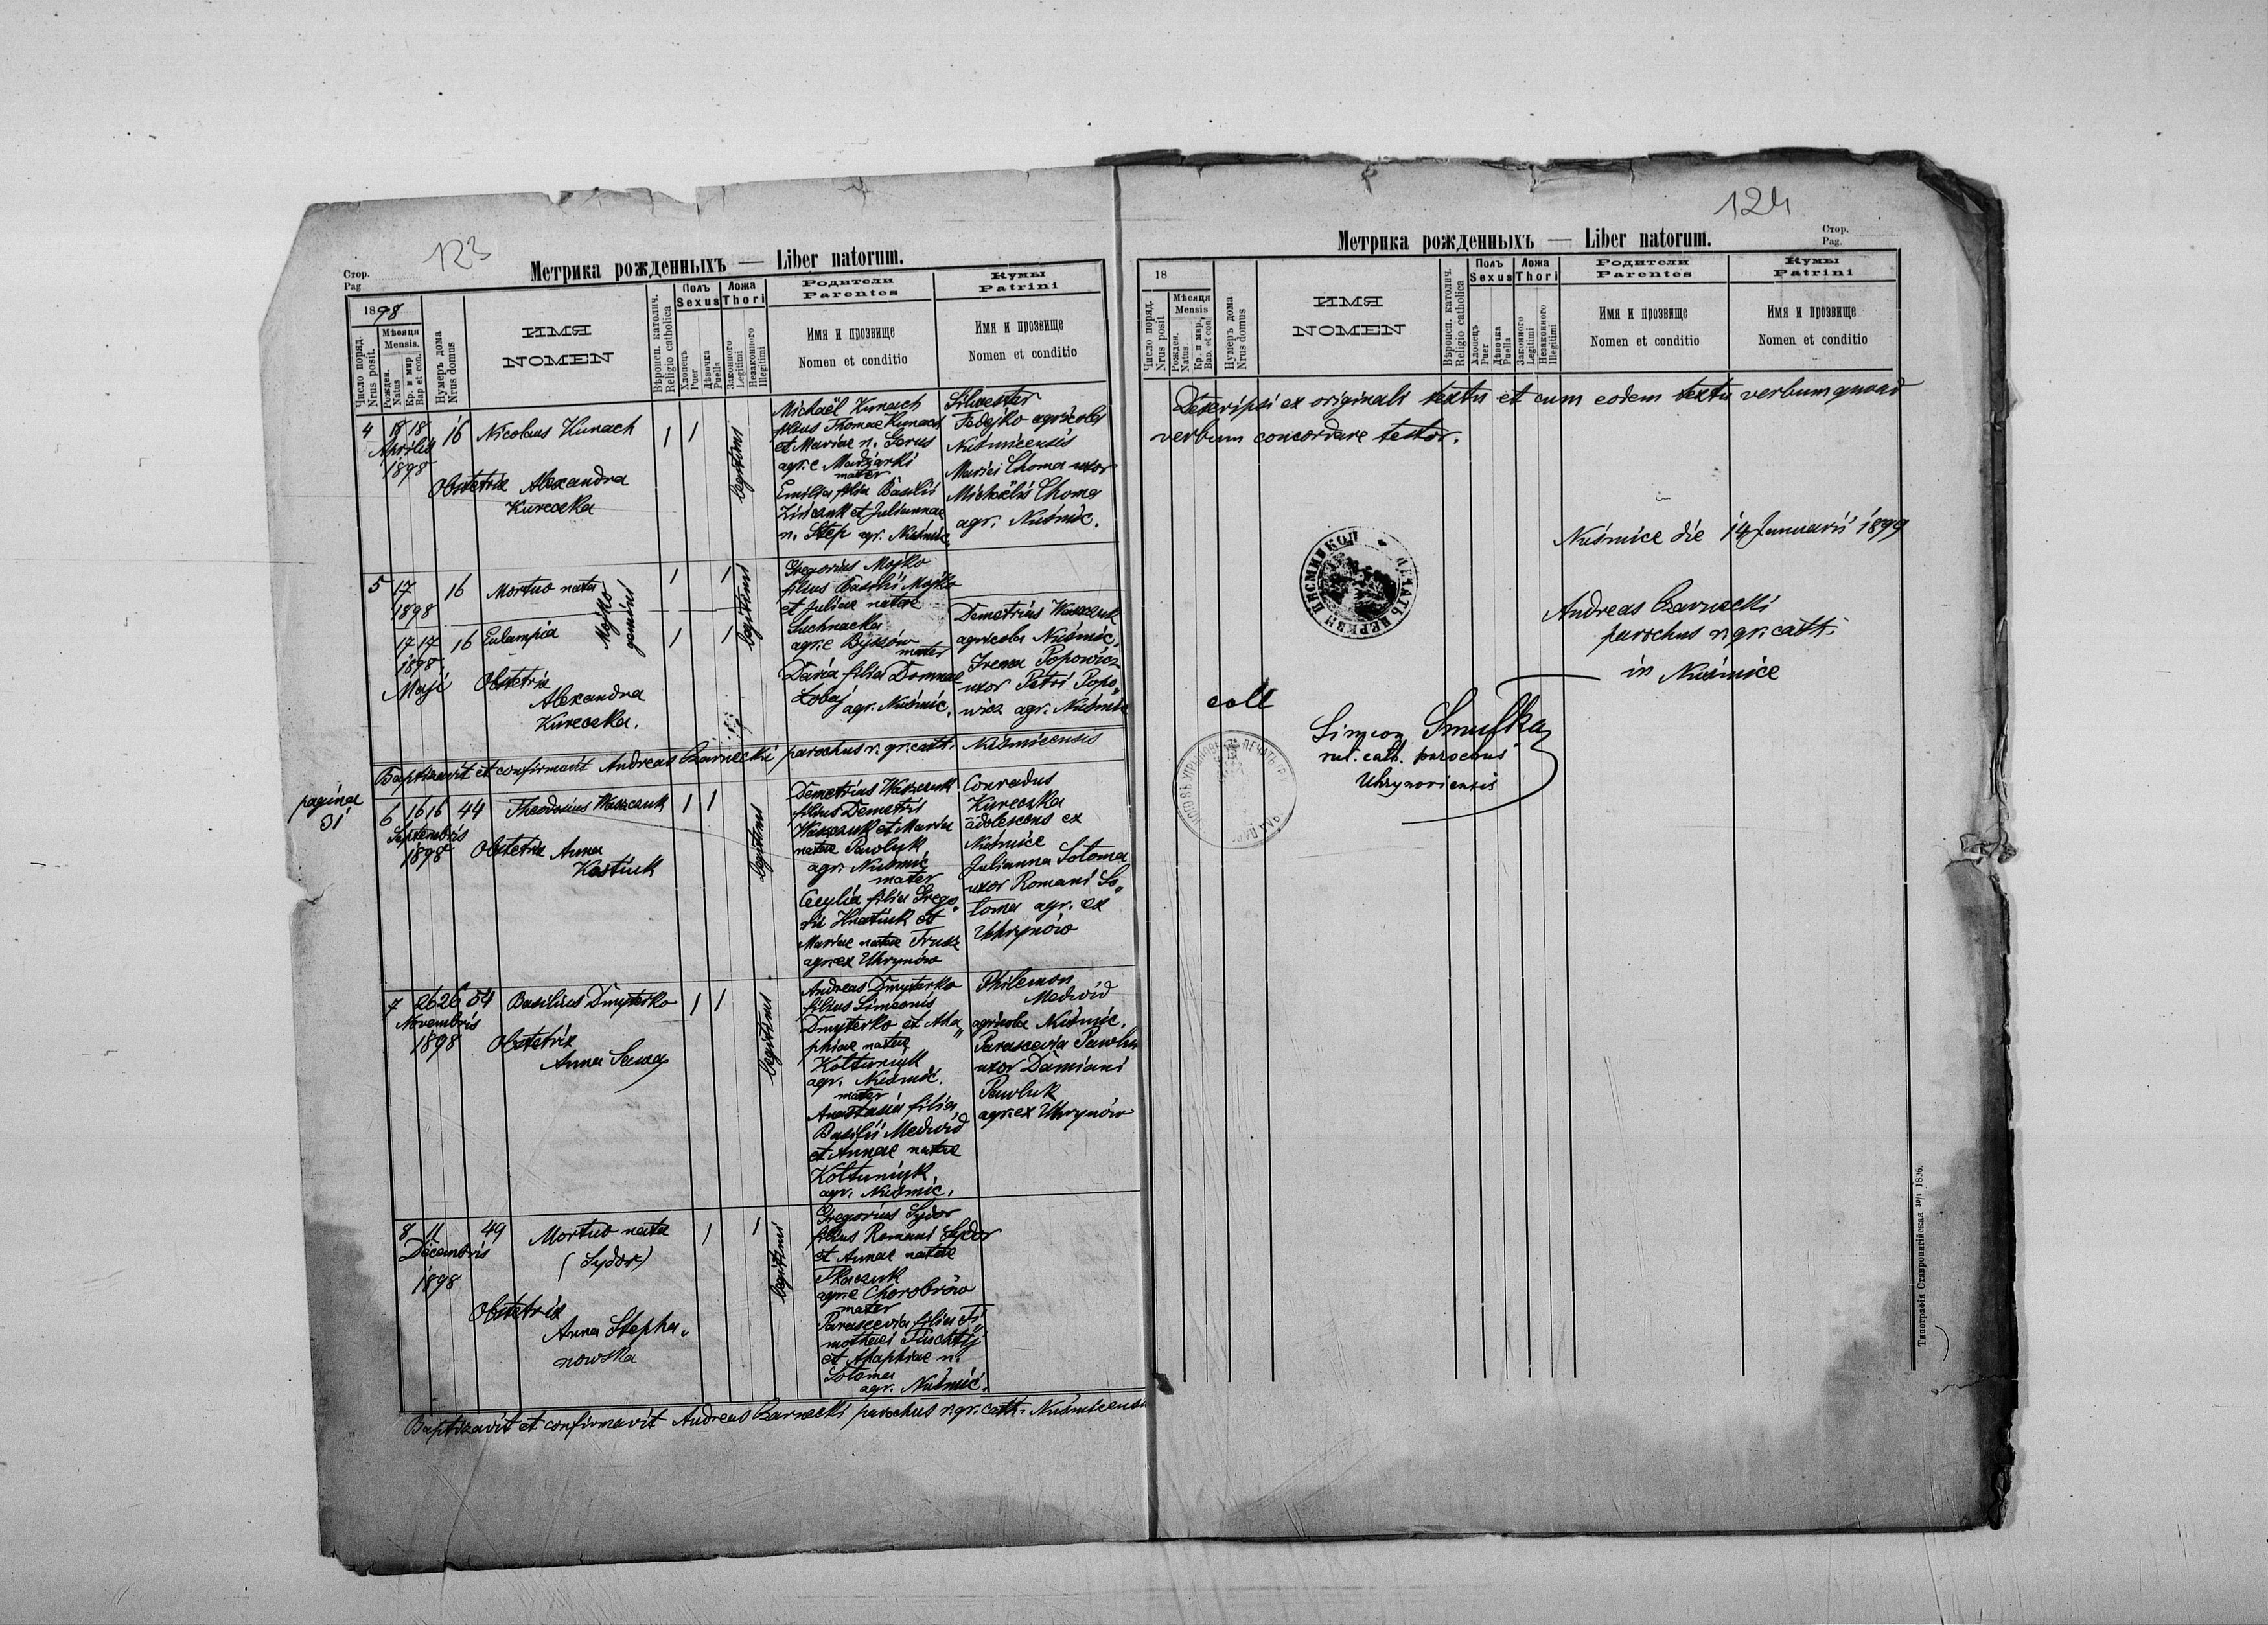 123
Стор.
Pag
Метрика рожденныхъ — Liber natorum.
1898
Число поряд.
Nrus posit.
Мѣсяця
Mensis.
Рожден.
Natus
Кр. и мир
Bap et con.
Нумеръ дома
Nrus domus
ИМЯ
NOMEN
Вѣроисп. католич.
Religio catholica
Полъ
Sexus
Хлопецъ
Puer
Дѣвочка
Puella
Ложа
Thori
Законного
Legitimi
Незаконного
Illegitimi
Родители
Parentes
Имя и прозвище
Nomen et conditio
Кумы
Patrini
Имя и прозвище
Nomen et conditio
4 18 18 16 Nicolaus Kunach 1 1 legitimi
Aprilis
1898
Obstetrix Alexandra
Kureczka
Michaël Kunach
filius Thomae Kunach
et Mariae n. Gorus
agr. e Madziarki
mater
Emilia filia Basilii
et Juliannae
n. Step agr. Nuśmic.
Silvester
Fedejko agricola
Nuśmicensis
Maria Choma uxor
Michaëlis Choma
agr. Nuśmic.
5 17 16 Mortuo nata 1 1 legitimi
1898
17 17 16 Eulampia 1 1
1898
Maji
Mojko
gemini
Obstetrix
Alexandra
Kureczka.
Gregorius Mojko
filius Basilii Mojko
et Juliae natae
Suchnacka
agr. e Byszów
mater
Daria filia Domnae
Łobaj
agr. Nuśmic.
Demetrius Waszczuk
agricola Nuśmic.
Irena Popowicz
uxor Petri Popo„
wicz agr. Nuśmic
Baptizavit et confirmavit Andreas Czarnecki parochus r. gr. cath. Nuśmicensis
pagina
31
6 16 16 44 Theodosius Waszczuk 1 1 legitimi
Septembris
1898
Obstetrix Anna
Kostiuk
Demetrius Waszczuk
filius Demetrii
Waszczuk et Maria
natae Pawluk
agr. Nuśmic
mater
Cecylia filia Grego„
rii Hnatiuk et
Mariae natae Trusz
agr. ex Uhrynów
Conradus
Kureczka
adolescens ex
Nuśmice
Julianna Sotoma
uxor Romani So„
toma agr. ex
Uhrynów
7 26 26 54 Basilius Dmyterko 1 1 legitimi
Novembris
1898
Obstetrix
Anna
Andreas Dmyterko
filius Simeonis
Dmyterko et Aha„
phiae natae
Kołtuniuk
agr. Nuśmic.
mater
Anastasia filia
Basilii Medwid
et Annae natae
Kołtuniuk
agr. Nuśmic.
Philemon
Medwid
agricola Nuśmic.
Parascevia Pawluk
uxor Damiani
Pawluk
agr. ex Uhrynów
8 11 49 Mortuo nata 1 1 legitimi
Decembris
1898
(Sydor)
Obstetrix
Anna Stepha„
nowska
Gregorius Sydor
filius Romani Sydor
et Annae natae
Tkaczuk
agr. e Chorobrów
mater
Parascevia filia Ti„
mothei
et Ahaphiae n.
Sotoma
agr. Nuśmic.
Baptizavit et confirmavit Andreas Czarnecki parochus r. gr. cath. Nuśmicensis
124
Стор.
Pag.
Метрика рожденныхъ — Liber natorum.
18
Число поряд.
Nrus posit
Мѣсяця
Mensis
Рожден.
Natus
Кр. и мир,
Bap. et con
Нумеръ дома
Nrus domus
ИМЯ
NOMEN
Вѣроисп. католич.
Religio catholica
Полъ
Sexus
Хлопецъ
Puer
Дѣвочка
Puella
Ложа
Thori
Законного
Legitimi
Незаконного
Illegitimi
Родители
Parentes
Имя и прозвище
Nomen et conditio
Кумы
Patrini
Имя и прозвище
Nomen et conditio
Descripsi ex originali textu et cum eodem textu verbum quoad
verbum concordare testor.
Nuśmice die 14 Januarii 1899
Andreas Czarnecki
parochus r. gr. cath.
in Nuśmice
coll
Simeon
rut. cath. parochus
Uhrynoviensis
Типографія Ставропигійская